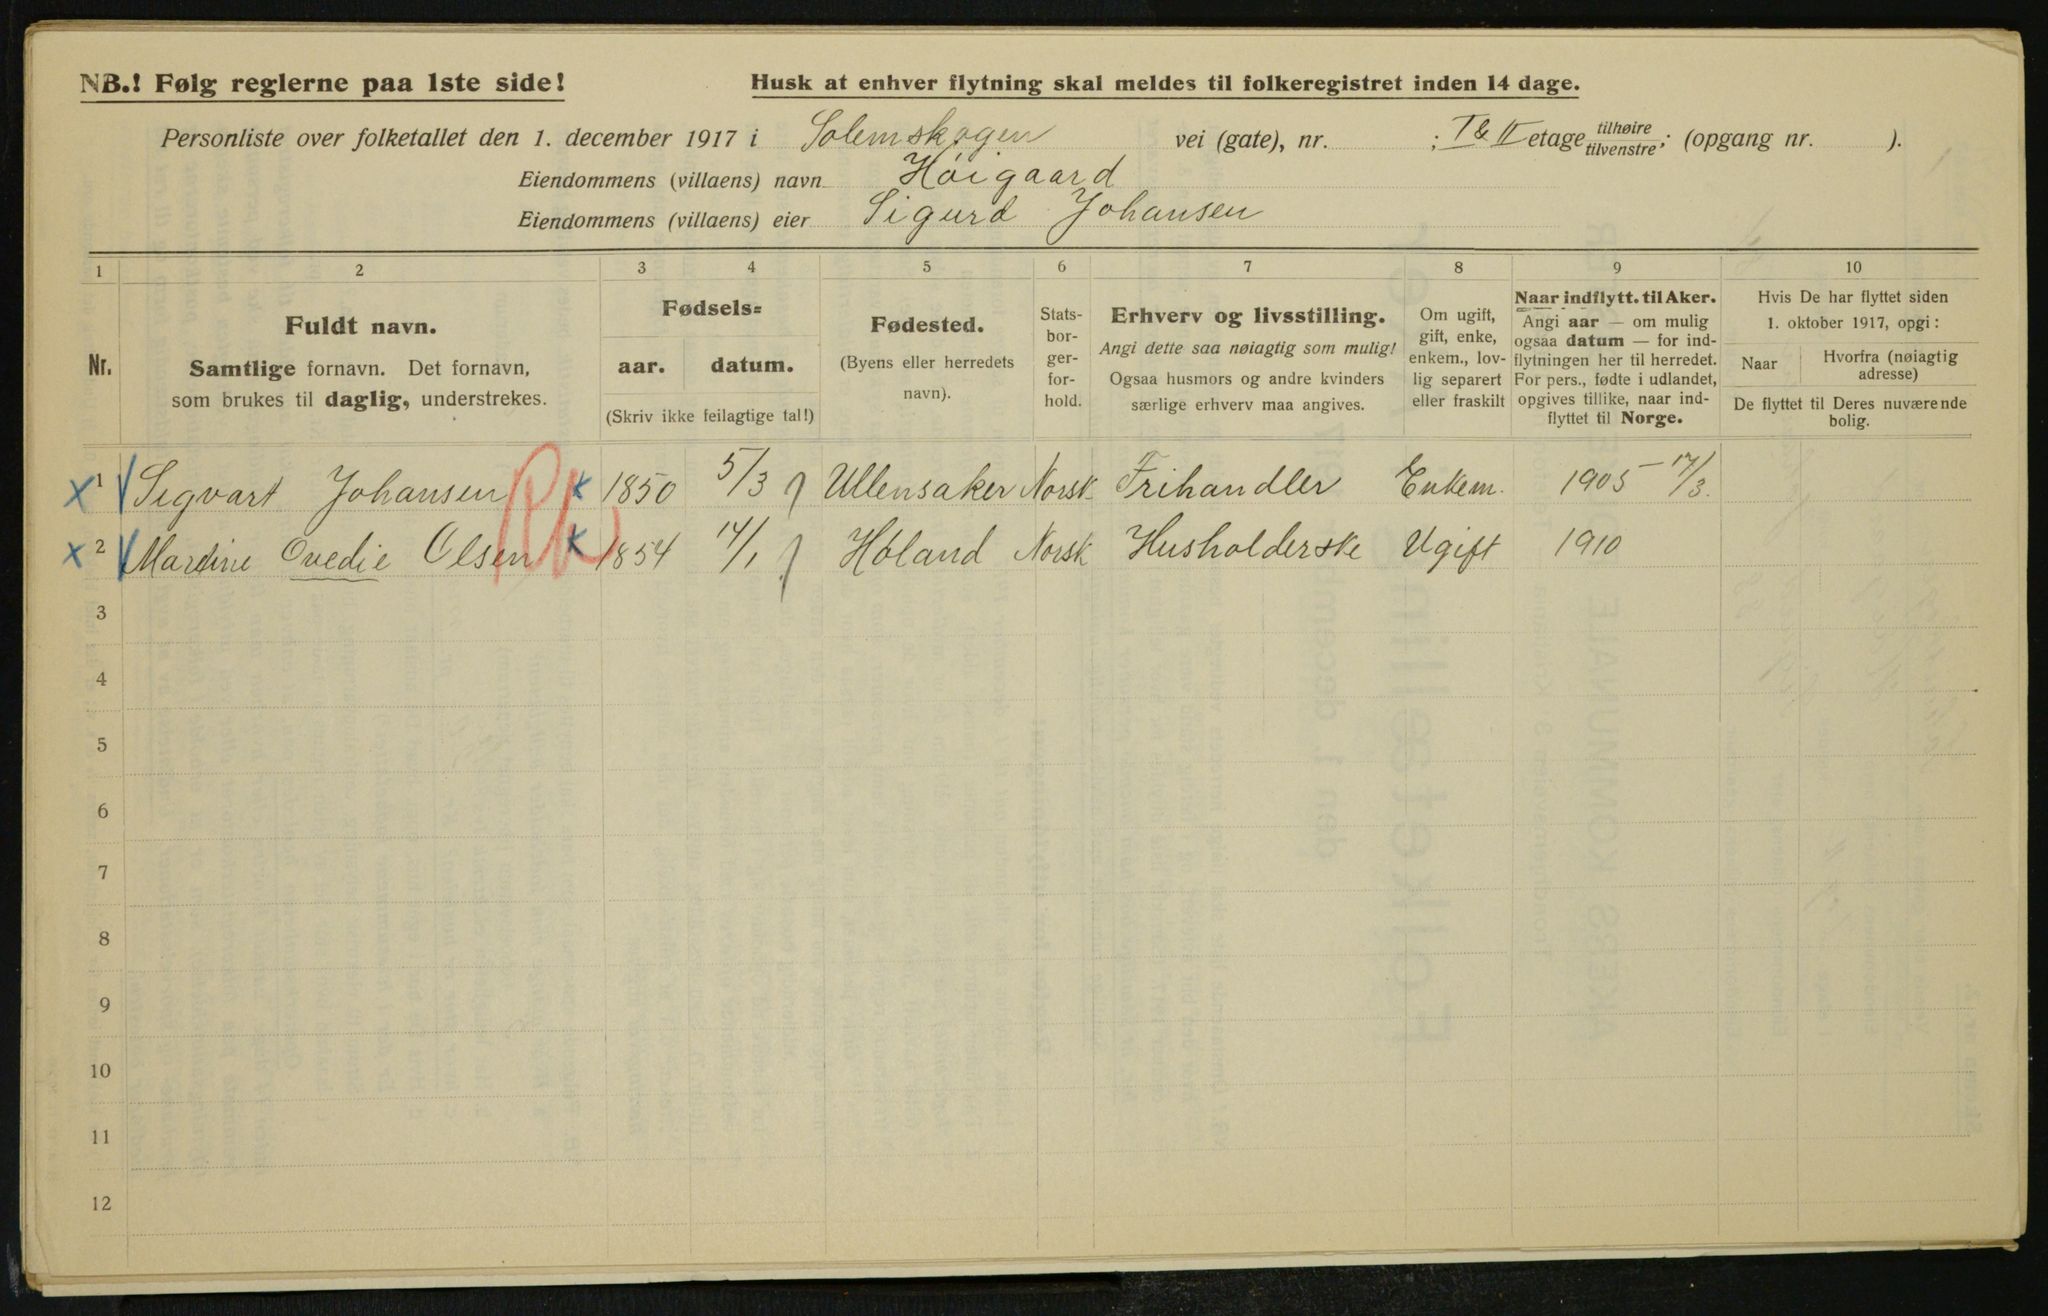 NB.! Følg reglerne paa 1ste side!
Husk at enhver flytning skal meldes til folkeregistret inden 14 dage.
Personliste over folketallet den 1. december 1917 i Solemskogen vei (gate), nr. ; I & II etage tilhøire tilvenstre; (opgang nr. ).
Eiendommens (villaens) navn Høigaard
Eiendommens (villaens) eier Sigurd Johansen
1 2 3 4 5 6 7 8 9 10
Nr.
Fuldt navn.
Samtlige fornavn. Det fornavn,
som brukes til daglig, understrekes.
Fødsels=
aar. datum.
(Skriv ikke feilagtige tal!)
Fødested.
(Byens eller herredets
navn).
Stats-
bor-
ger-
for-
hold.
Erhverv og livsstilling.
Angi dette saa nøiagtig som mulig!
Ogsaa husmors og andre kvinders
særlige erhverv maa angives.
Om ugift,
gift, enke,
enkem., lov-
lig separert
eller fraskilt
Naar indflytt. til Aker.
Angi aar — om mulig
ogsaa datum — for ind-
flytningen her til herredet.
For pers., fødte i udlandet,
opgives tillike, naar ind-
flyttet til Norge.
Hvis De har flyttet siden
1. oktober 1917, opgi:
Naar
Hvorfra (nøiagtig
adresse)
De flyttet til Deres nuværende
bolig.
x 1 Sigvart Johansen K 1850 5/3 Ullensaker Norsk Frihandler Enkem. 1905 - 17/3.
x 2 Martine Ovedie Olsen K 1854 14/1 Høland Norsk Husholderske Ugift 1910
3
4
5
6
7
8
9
10
11
12